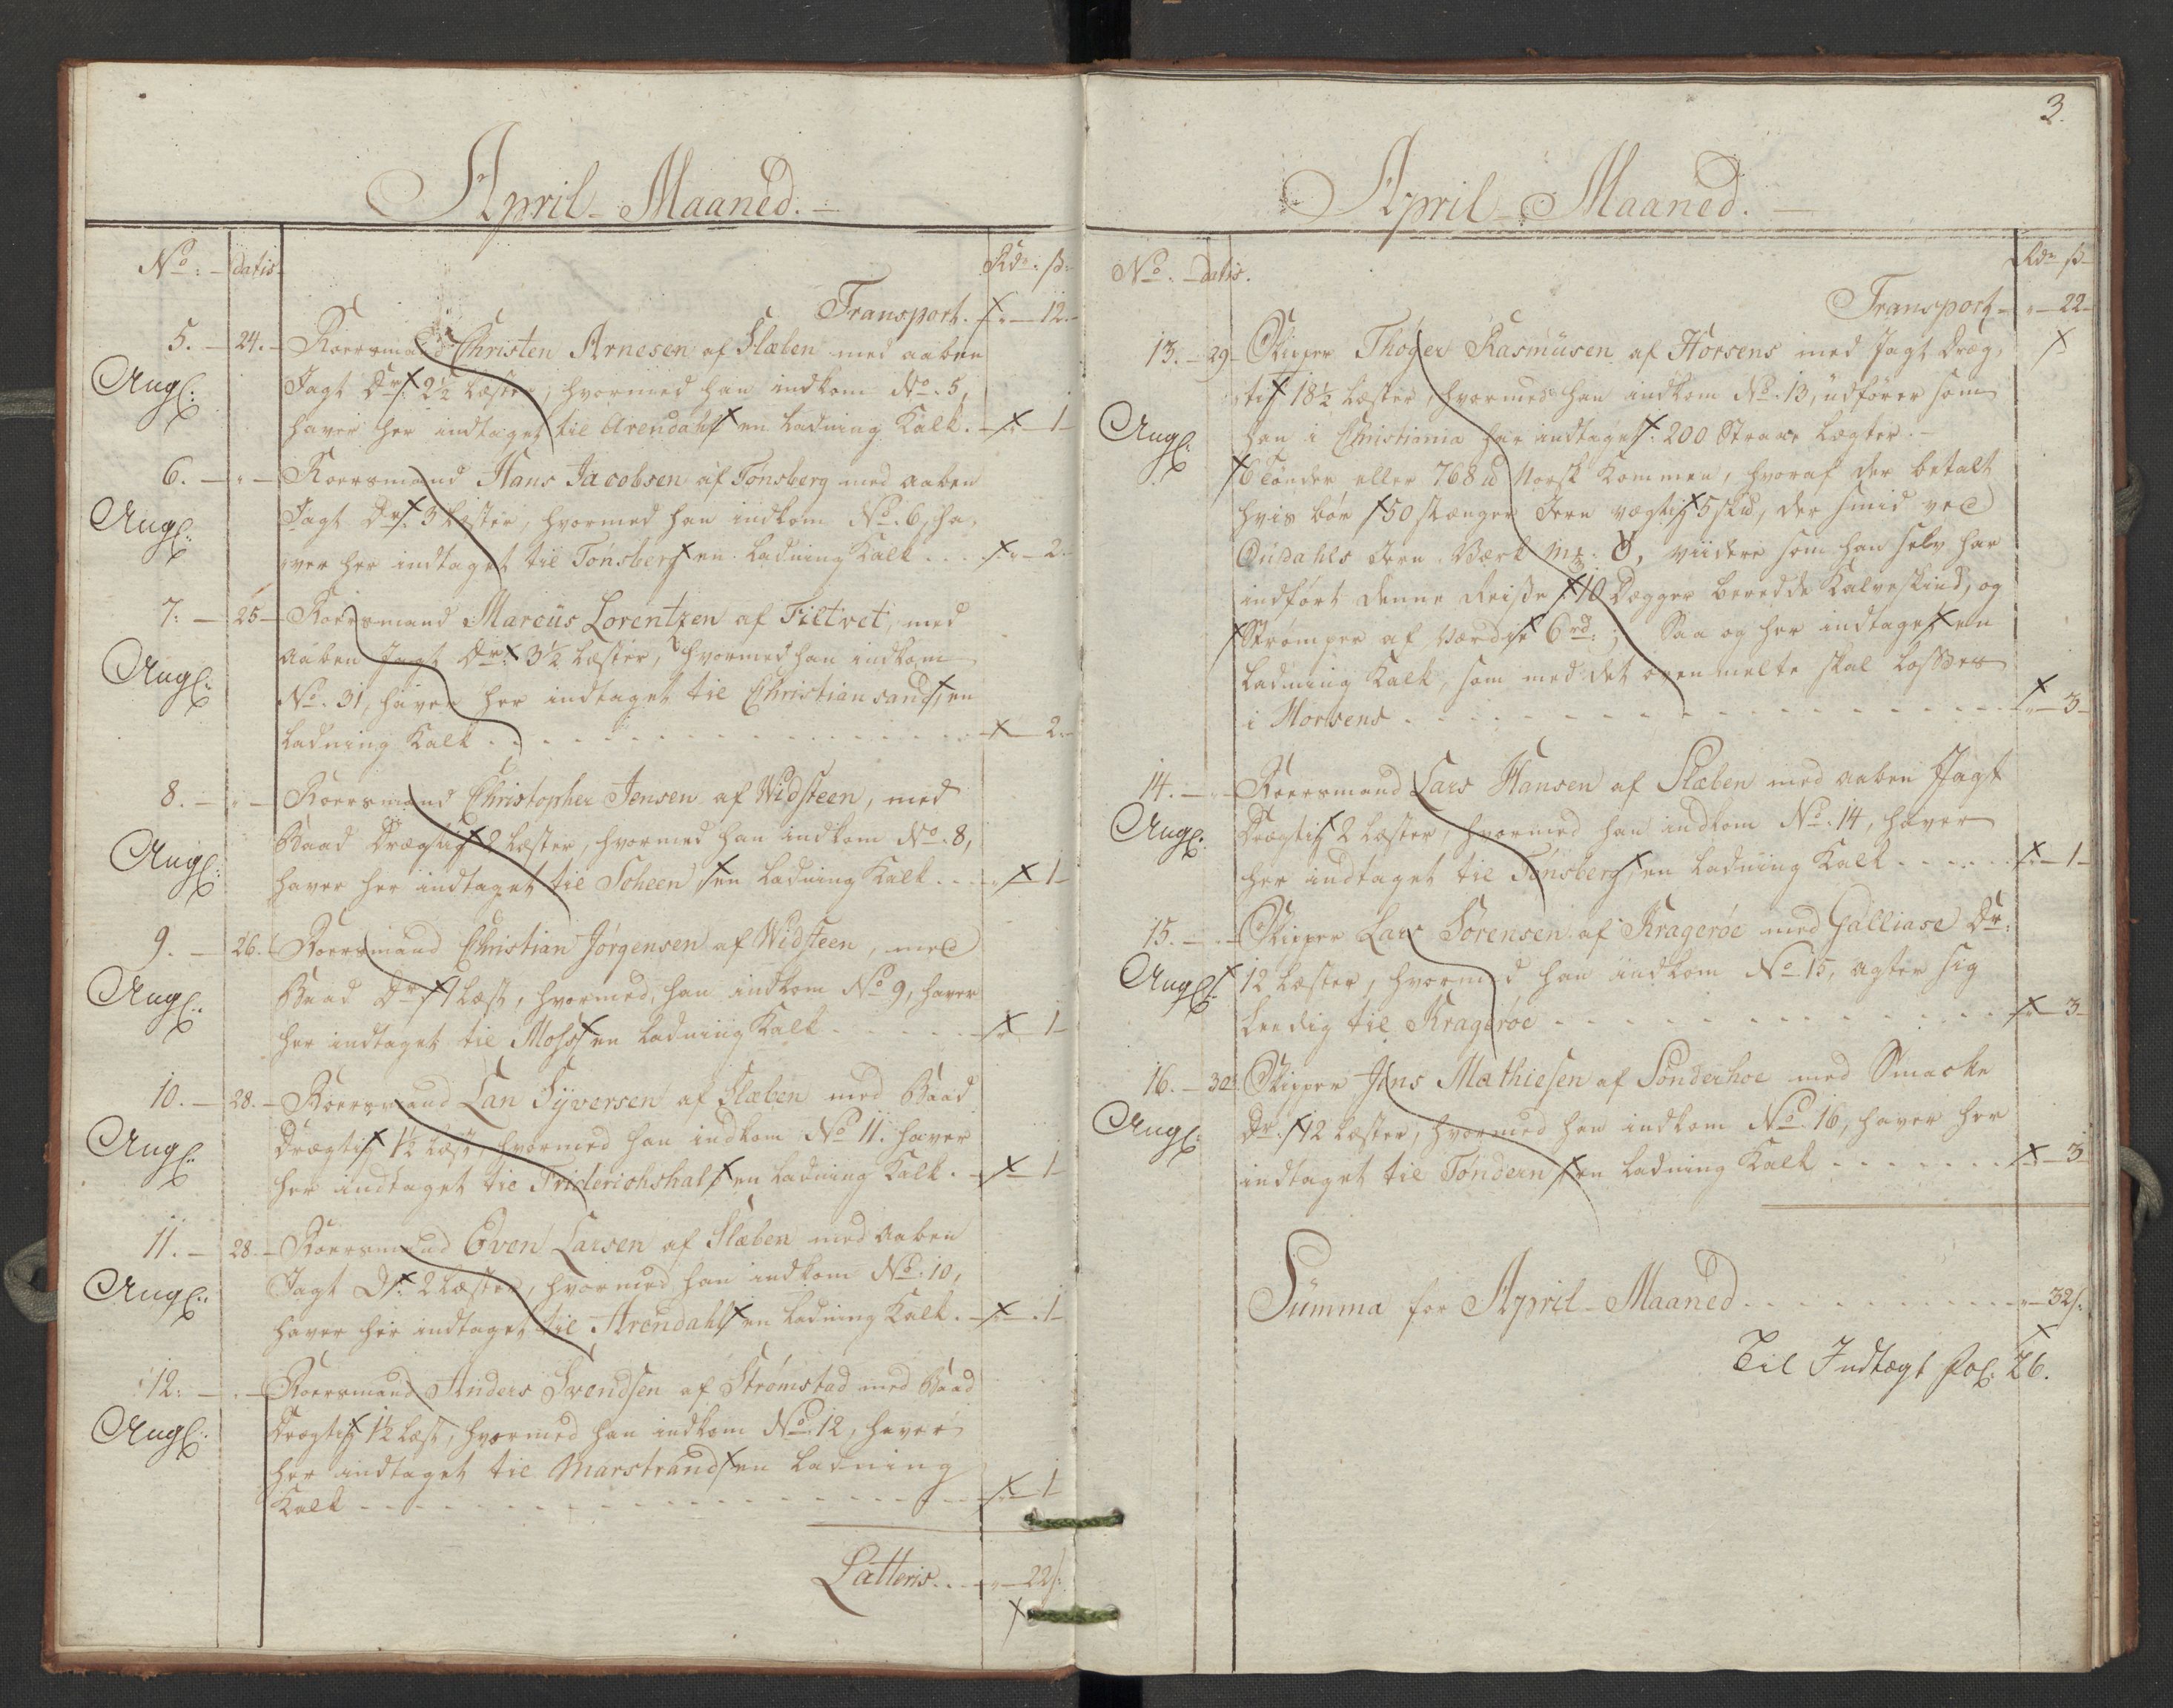 April Maaned.
No: datis Rdr: ß:
Transport. - " - 12.
5. - 24. - Roersmand Christen Arnesen af Slæben med aaben
Angl: Jagt Dr: 2½ Læster, hvormed han indkom No. 5,
haver her indtaget til Arendahl en Ladning Kalk. - " - 1 -
6. - " - Roersmand Hans Jacobsen af Tønsberg med aaben
Angl: Jagt Dr: 3 Læster, hvormed han indkom No. 6, ha-
ver her indtaget til Tonsberg en Ladning Kalk . . - " - 2.
7: - 25 - Roersmand Marcus Lorentzen af Filtvet, med
Angl: aaben Jagt Dr: 3½ Læster, hvormed han indkom
No. 31, haver her indtaget til Christiansand, en
Ladning Kalk . . . 2.
8. - " - Roersmand Christopher Jensen af Widsteen, med
Angl: Baad Drægtig 2 Læster, hvormed han indkom No. 8,
haver her indtaget til Scheen en Ladning Kalk . . . 1 -
9. - 26. Roersmand Christian Jørgensen af Widsteen, med
Angl: Baad Dr. 1 Læst, hvormed han indkom No 9, haver
her indtaget til Moss en Ladning Kalk . . . 1 -
10. - 28. - Roersmand Lan Syversen af Slæben med Baad
Angl: Drægtig 1½ Læst, hvormed han indkom No 11. haver
her indtaget til Friderichshal en Ladning Kalk. - 1 -
11. - 28. - Roersmand Even Larsen af Slæben med aaben
Angl: Jagt Dr: 2 Læster, hvormed han indkom No. 10,
haver her indtaget til Arendahl en Ladning Kalk. - 1 -
12: - " - Roersmand Anders Svendsen af Strømstad med Baad
Angl: Drægtig 1½ Læst, hvormed han indkom No. 12, haver
her indtaget til Marstrand en Ladning
Kalk . . . 1
Latteris . . . " - 22ß:
3.
April Maaned.
No. datis. Rdr ß
Transport - " - 22
13. - 29 - Skipper Thøger Rasmusen af Horsens med Jagt Dræg-
tig 18½ Læster, hvormed han indkom No. 13, udfører som
Angl: han i Christiania har indtaget: 200 Straae Lægter. -
6 Tønder eller 768 lb Norsk Kommen, hvoraf der betalt
hvis bør 50 stænger Jern vægtig 5 sklb, der smid ved
Oudahls Jern-Værk, viidere som han selv har
indført denne Reise 10 Degger beredde Kalveskind, og
Strømper af Værdie 6 rd: ; Saa og her indtaget en
Ladning Kalk, som med det ovenmelte skal losses
i Horsens . . . 3 -
14. - " - Roersmand Lars Hansen af Slæben med aaben Jagt
Angl: Drægtig 2 Læster, hvormed han indkom No. 14, haver
her indtaget til Tønsberg en Ladning Kalk . . . 1 -
15. - " - Skipper Lars Sørensen af Kragerøe med Galliase Dr:
Angl: 12 Læster, hvormed han indkom No 15, agter sig
Leedig til Kragerøe . . . 3 -
16. - 30 Skipper Jens Mathiesen af Sønderhoe med Smacke
Angl: Dr. 12 Læster, hvormed han indkom No. 16, haver her
indtaget til Tøndern en Ladning Kalk . . . 3
Summa for April Maaned . . . " - 32ß:
Til Indtægt fol: 26.